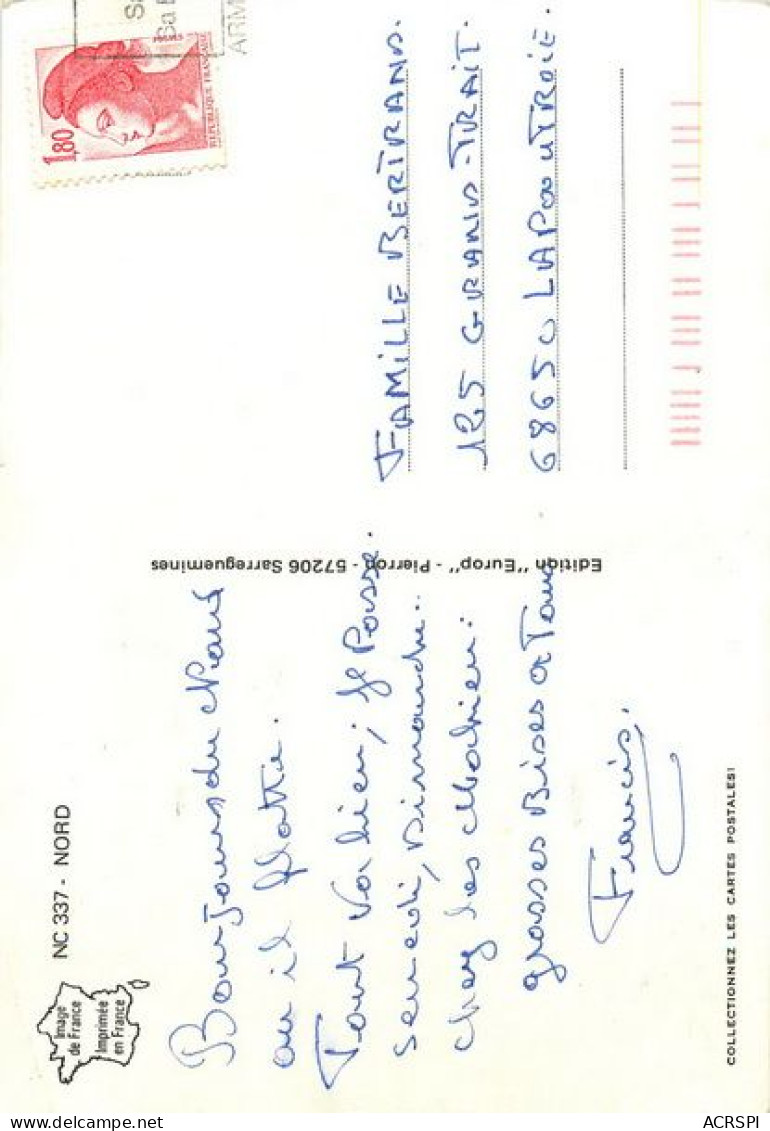 Image
de France
Imprimée
en France
NC 337 - NORD
Bonjours du Nord
où il flotte.
Tout va bien, je Passe
samedi, Dimanche..
chez les Mahieu.
grosses Bises a Tous
Francis.
COLLECTIONNEZ LES CARTES POSTALES!
Edition "Europ" - Pierron - 57206 Sarreguemines
Sa
ARM
1,80
POSTES
REPUBLIQUE FRANÇAISE
FAMILLE BERTRAND.
125 GRAND-TRAIT.
68650 LAPOUTROIE.
ACRSPI